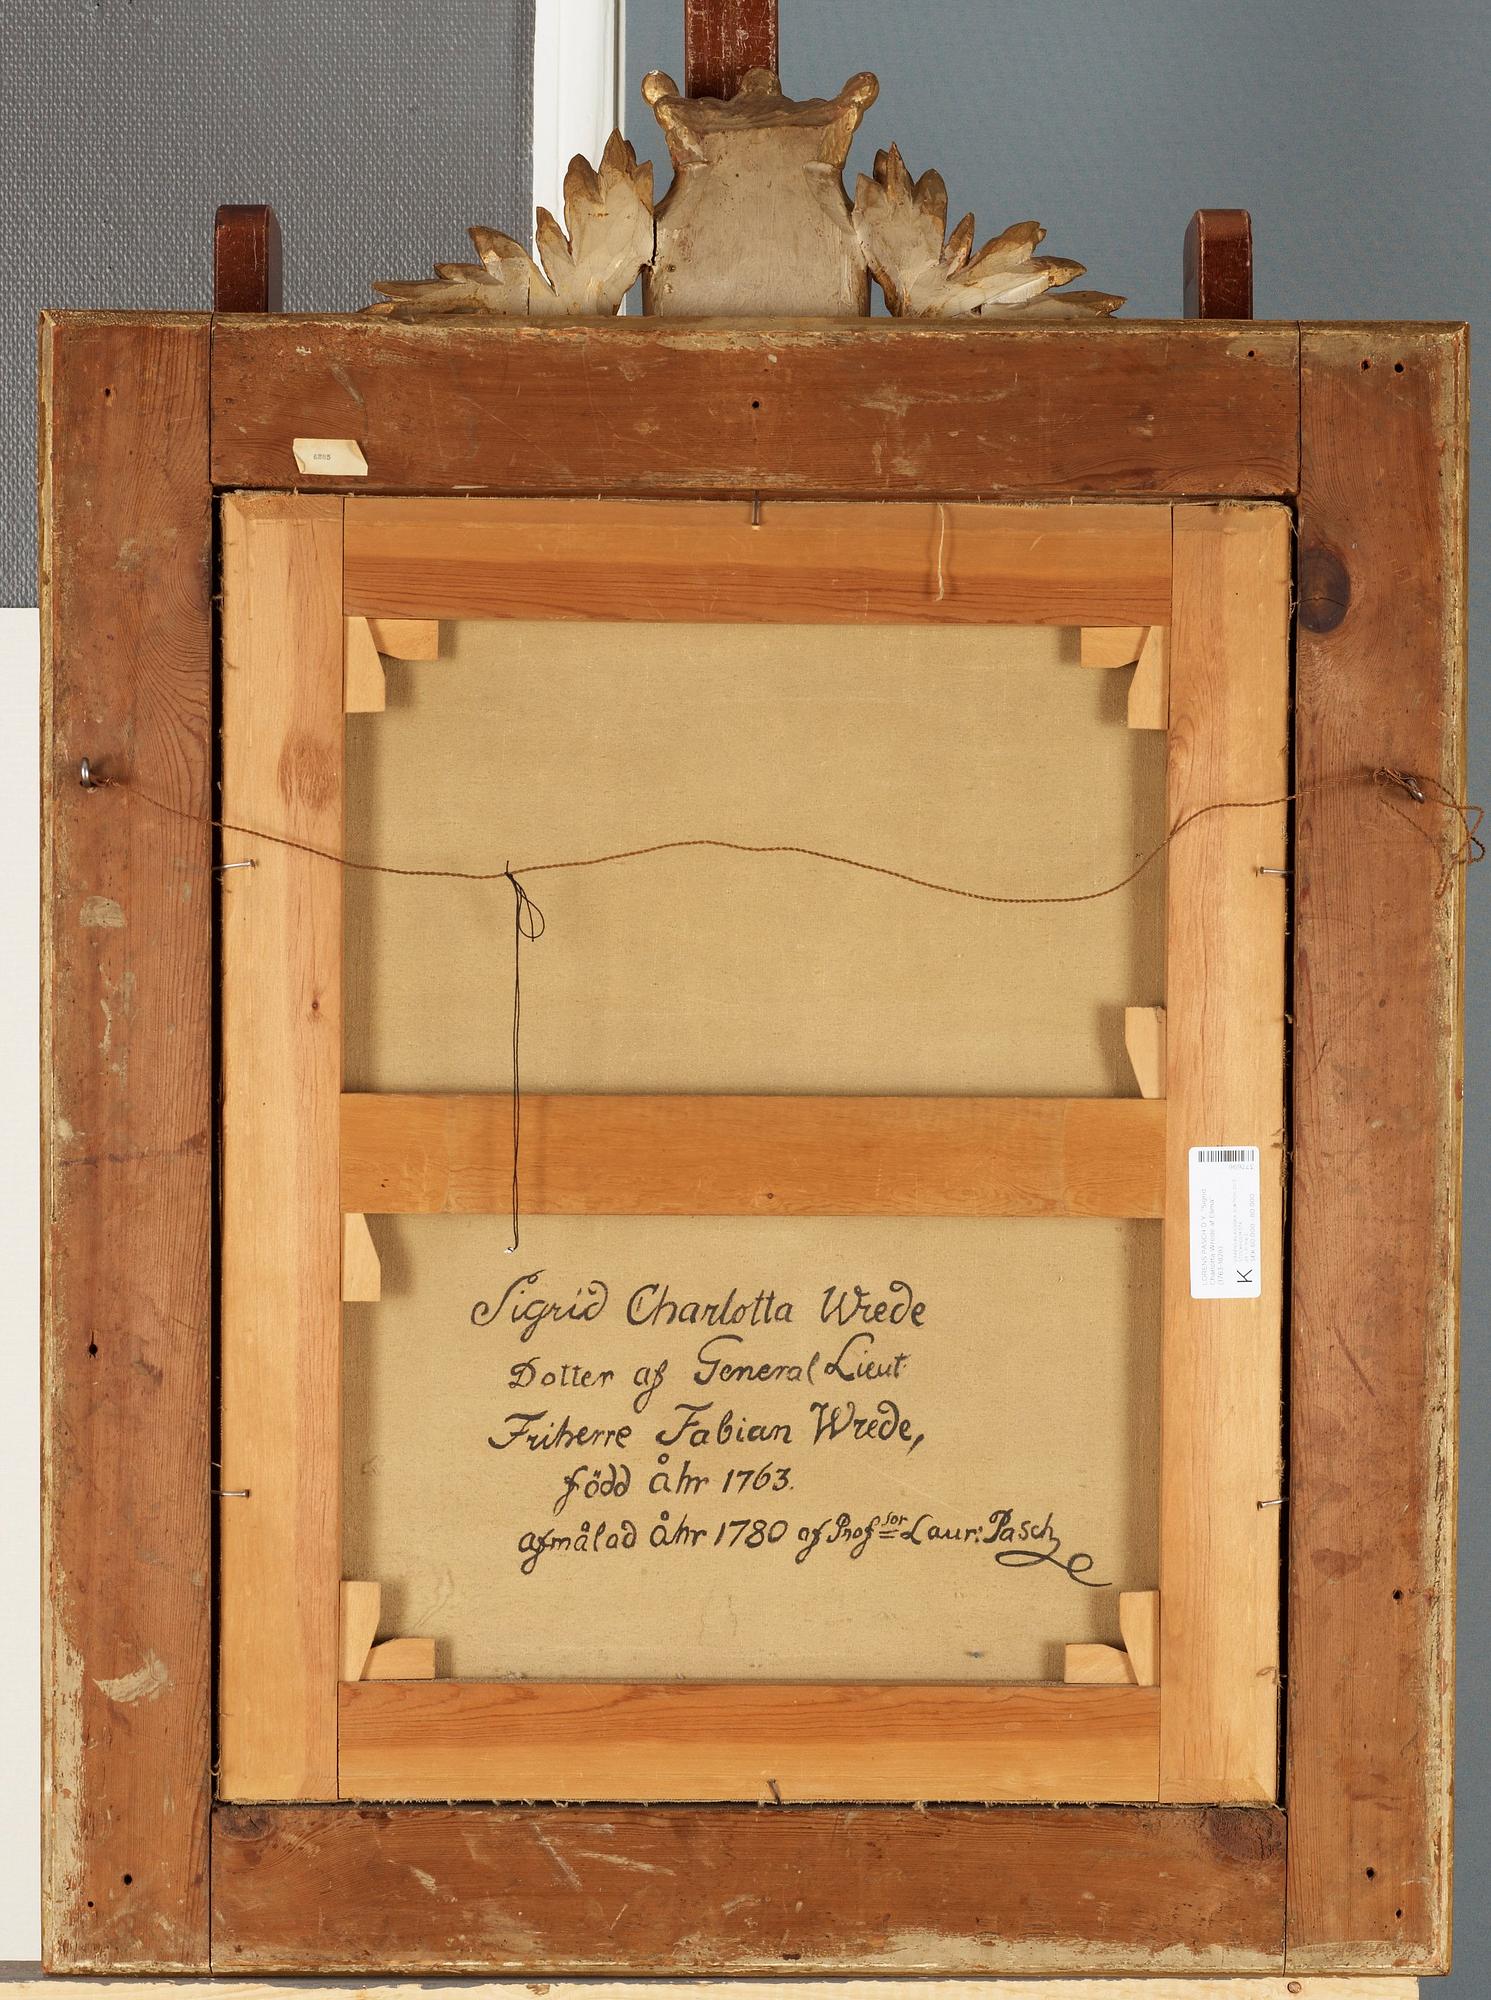 6885
Sigrid Charlotta Wrede
Dotter af General Lieut
Friherre Fabian Wrede,
född åhr 1763.
afmålad åhr 1780 af Prof:sor Laur: Pasch
LORENS PASCH D Y. "Sigrid
Charlotta Wrede af Elimä"
K